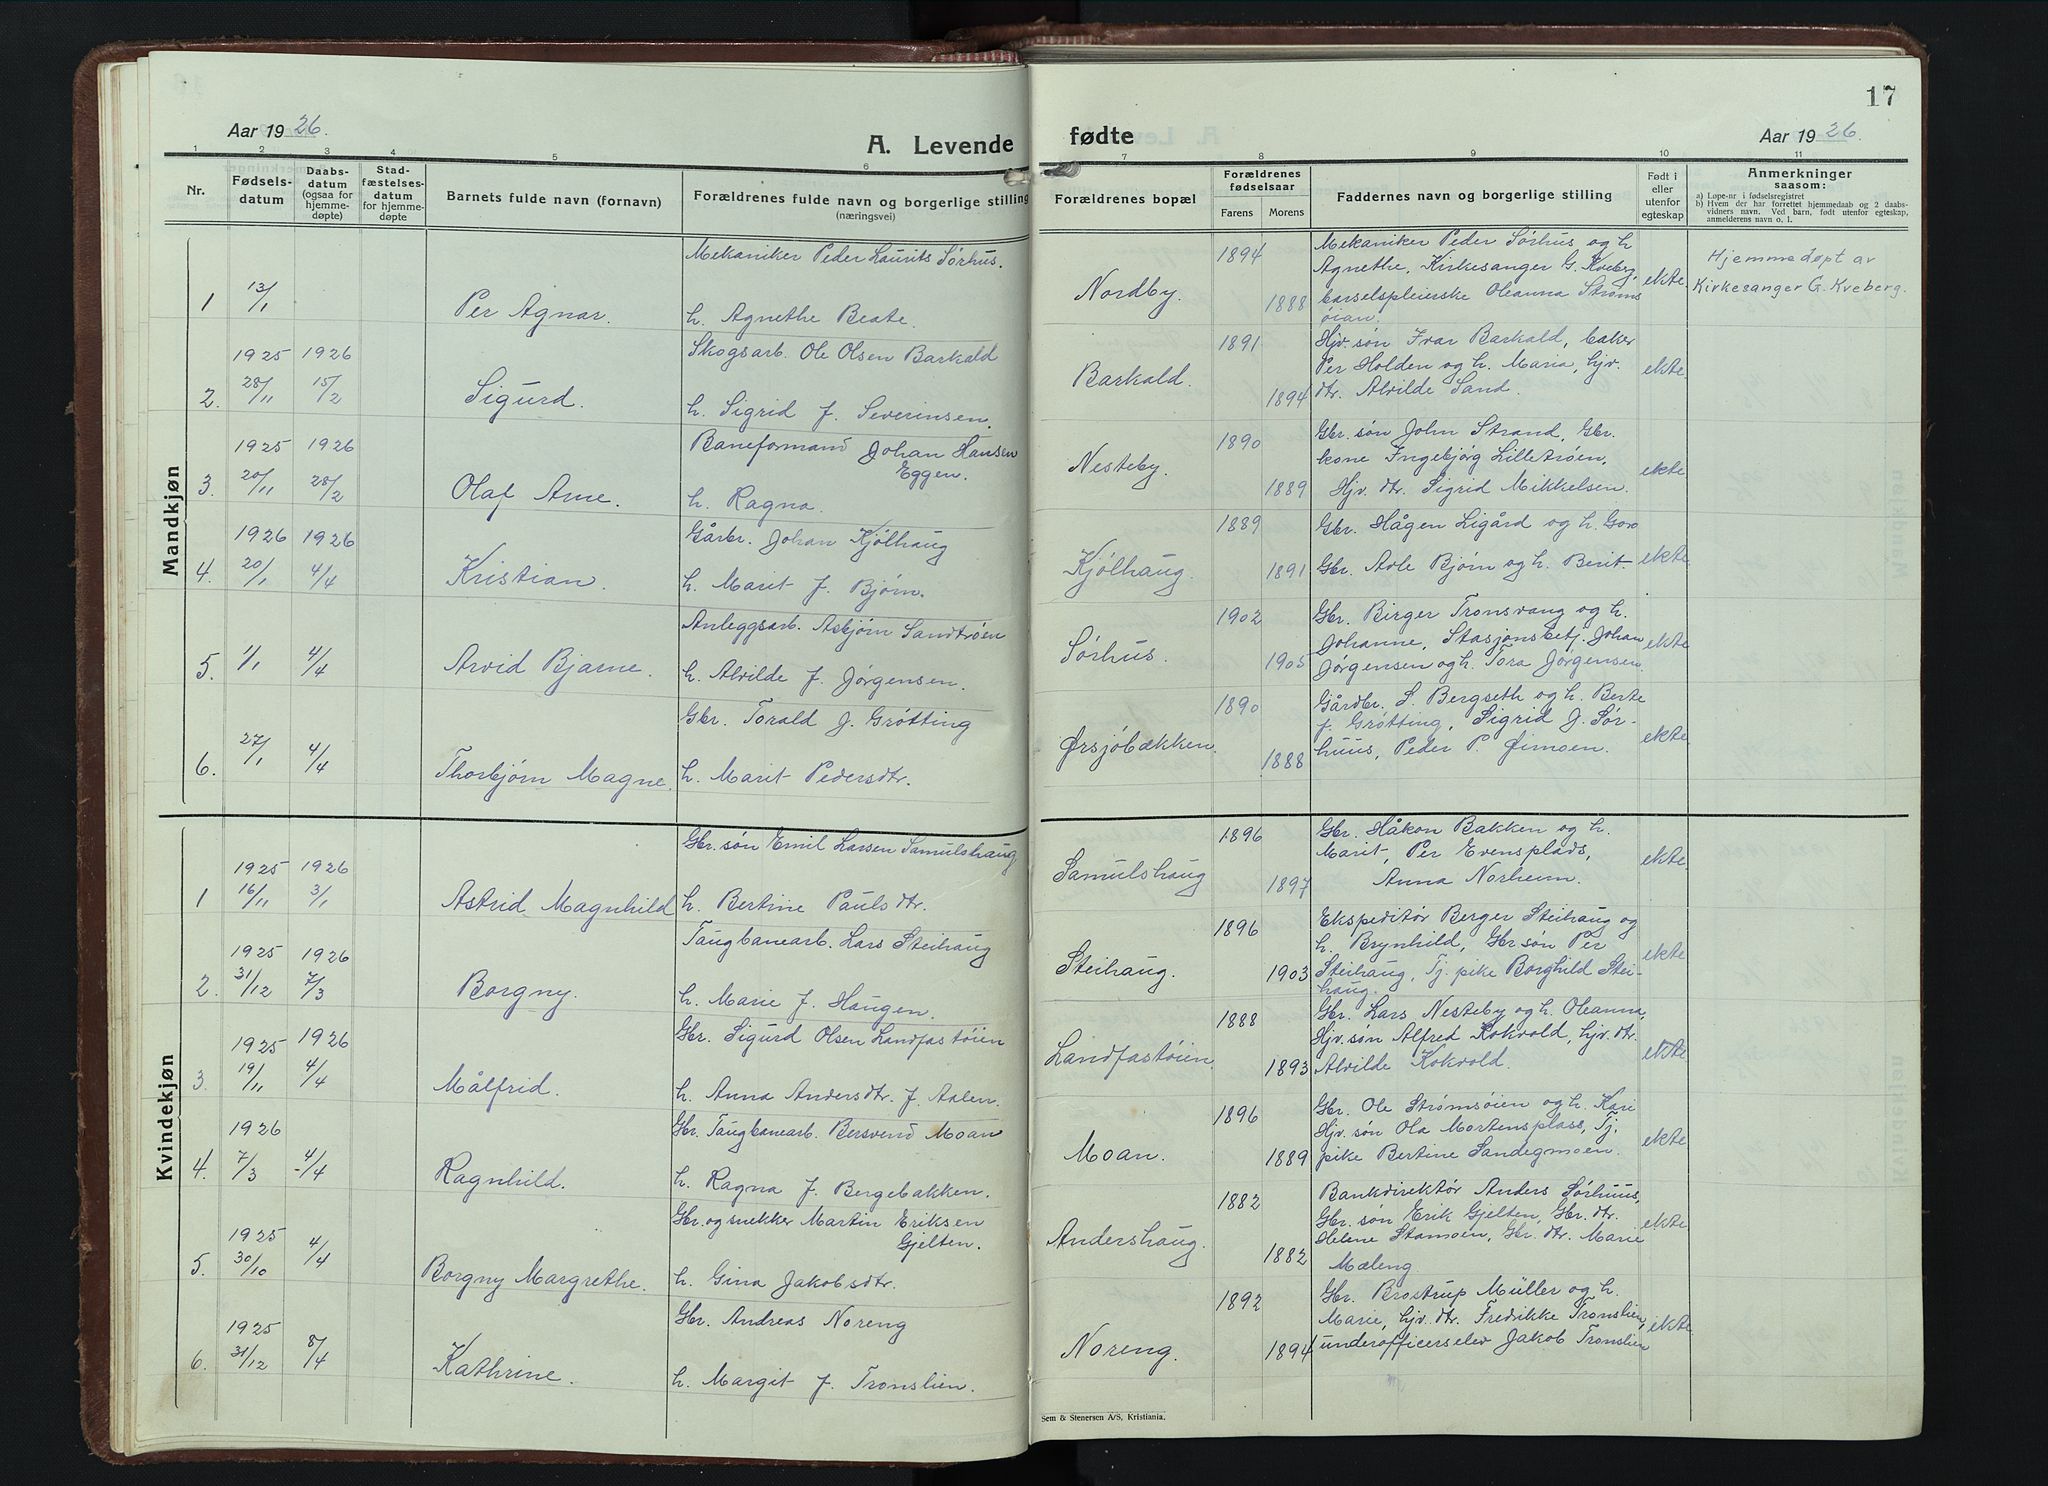 Aar 1926.
A. Levende
1 2 3 4 5 6
Nr.
Fødsels-
datum
Daabs-
datum
(ogsaa for
hjemme-
døpte)
Stad-
fæstelses-
datum
for hjemme-
døpte
Barnets fulde navn (fornavn)
Forældrenes fulde navn og borgerlige stilling
(næringsvei)
Mandkjøn
Mekaniker Peder Laurits Sørhus.
1 13/1 Per Agnar. h. Agnethe Beate.
1925 1926 Skogsarb. Ole Olsen Barkald
2. 28/11 15/2 Sigurd. h. Sigrid f. Severinsen.
1925 1926 Baneformand Johan Hansen
Eggen.
3. 20/11 28/2 Olaf Arne. h. Ragna.
1926 1926 Gårbr. Johan Kjølhaug
4. 20/1 4/4 Kristian. h. Marit f. Bjørn.
Anleggsarb. Asbjørn Sandtrøen
5. 1/1 4/4 Arvid Bjarne. h. Alvilde f. Jørgensen.
Gbr. Torald J. Grøtting
6. 27/1 4/4 Thorbjørn Magne. h. Marit Pedersdtr.
Kvindekjøn
Gbr. søn Emil Larsen Samulshaug
1925 1926
1 16/11 3/1 Astrid Magnhild h. Bertine Paulsdtr.
1925 1926 Taugbanearb. Lars Steihaug
2. 31/12 7/3 Borgny. h. Marie f. Haugen.
1925 1926 Gbr. Sigurd Olsen Landfastøien
3. 19/11 4/4 Målfrid. h. Anna Andersdtr. f. Aalen.
1926 Gbr. Taugbanearb. Bersvend Moan
4. 7/3 4/4 Ragnhild. h. Ragna f. Bergebakken.
1925 Gbr. og snekker Martin Eriksen
Gjelten.
5. 30/10 4/4 Borgny Margrethe. h. Gina Jakobsdtr.
1925 Gbr. Andreas Noreng
6. 31/12 8/4 Kathrine. h. Margit f. Tronslien.
17
fødte
Aar 1926.
7 8 9 10 11
Forældrenes bopæl
Forældrenes
fødselsaar
Farens Morens
Faddernes navn og borgerlige stilling
Født i
eller
utenfor
egteskap
Anmerkninger
saasom:
a) Løpe-nr i fødselsregistret
b) Hvem der har forrettet hjemmedaab og 2 daabs-
vidners navn. Ved barn, født utenfor egteskap,
anmelderens navn o. l.
Nordby. 1894 1888
Mekaniker Peder Sørhus og h
Agnethe, Kirkesanger G. Kveberg,
barselspleierske Oleanna Strøms
øian.
ekte.
Hjemmedøpt av
Kirkesanger G. Kveberg.
Barkald. 1891 1894
Hjv. søn Ivar Barkald, baker
Per Holden og h. Maria, hjv.
dtr. Alvilde Sand.
ekte.
Nesteby. 1890 1889
Gbr. søn John Strand, Gbr.
kone Ingebjørg Lilletrøen,
Hjv. dtr. Sigrid Mikkelsen.
ekte.
Kjølhaug. 1889 1891
Gbr. Hågen Ligård og h. Goro
Gbr. Avle Bjørn og h. Berit.
ekte.
Sørhus. 1902 1905
Gbr. Birger Tronsvang og h.
Johanne, Stasjonsbetj. Johan
Jørgensen og h. Tora Jørgensen.
ekte
Ørsjøbækken. 1890 1888
Gårdbr. S. Bergseth og h. Berte
f. Grøtting, Sigrid J. Sør-
huus, Peder P. Øimoen.
ekte.
Samulshaug 1896 1897
Gbr. Håkon Bakken og h.
Marit, Per Evensplads,
Anna Norheim.
ekte.
Steihaug. 1896 1903
Ekspeditør Berger Steihaug og
h. Brynhild, Gbr søn Per
Steihaug, Tj. pike Borghild Stei-
haug.
ekte.
Landfastøien. 1888 1893
Gbr. Lars Nesteby og h. Oleanna,
Hjv. søn Alfred Kokvold, hjv. dtr.
Alvilde Kokvold.
ekte
Moan. 1896 1889
Gbr. Ole Strømsøien og h. Kari
Hjv. søn Ola Mortensplass, Tj.
pike Bertine Sandegmoen.
ekte
Andershaug. 1882 1882
Bankdirektør Anders Sørhuus,
Gbr. søn Erik Gjelten, Gbr. dtr.
Helene Stamoen, Gbr. dtr. Marie
Mæleng.
ekte
Noreng. 1892 1894
Gbr. Brostrup Müller og h.
Marie, hjv. dtr. Fredrikke Tronslien,
underofficerselev Jakob Tronslien
ekte.
Sem & Stenersen A/S, Kristiania.